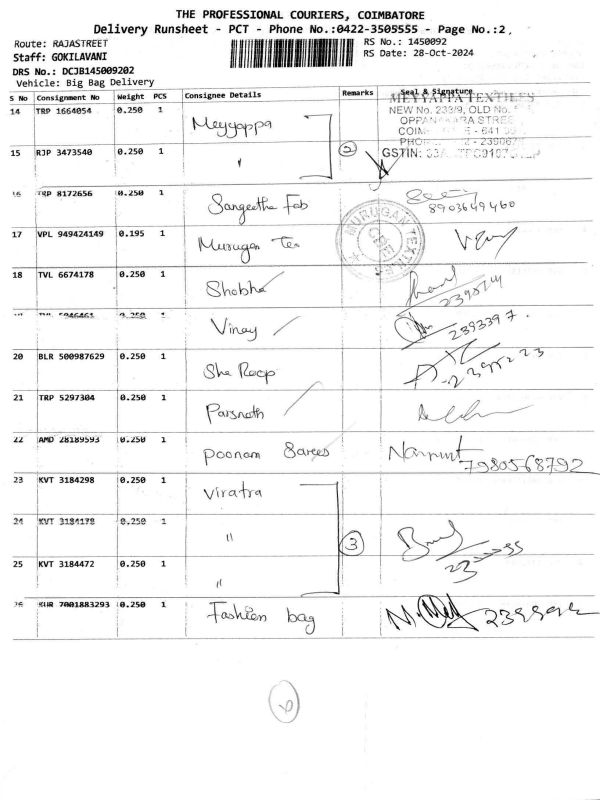 THE PROFESSIONAL COURIERS, COIMBATORE
Delivery Runsheet - PCT - Phone No.:0422-3505555 - Page No.:2,
Route: RAJASTREET
RS No.: 1450092
Staff: GOKILAVANI
RS Date: 28-Oct-2024
DRS No.: DCJB145009202
Vehicle: Big Bag Delivery
S No Consignment No Weight PCS Consignee Details Remarks Seal & Signature
MEYYAPPA TEXTILES
NEW No. 233/9, OLD No.
14 TRP 1664054 0.250 1 Meyyappa
15 RJP 3473540 0.250 1 " 2
GSTIN:
16 TRP 8172656 0.250 1 Sangeetha Fab
8903649460
17 VPL 949424149 0.195 1 Murugan Tex
MURUGAN TEXTILES
CBE
18 TVL 6674178 0.250 1 Shobha
0.250 1 Vinay 2393397.
20 BLR 500987629 0.250 1 She Roop
21 TRP 5297304 0.250 1 Parsnath
22 AMD 28189593 0.250 1 Poonam Sarees
7980568792
23 KVT 3184298 0.250 1 Viratra
24 KVT 3184178 0.250 1 " 3
25 KVT 3184472 0.250 1 "
26 KUR 7001883293 0.250 1 Fashion bag